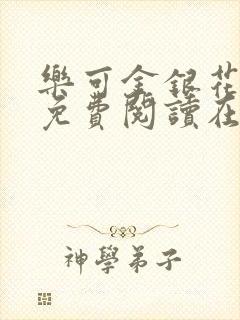 樂可金銀花
免費閱讀在
神學弟子